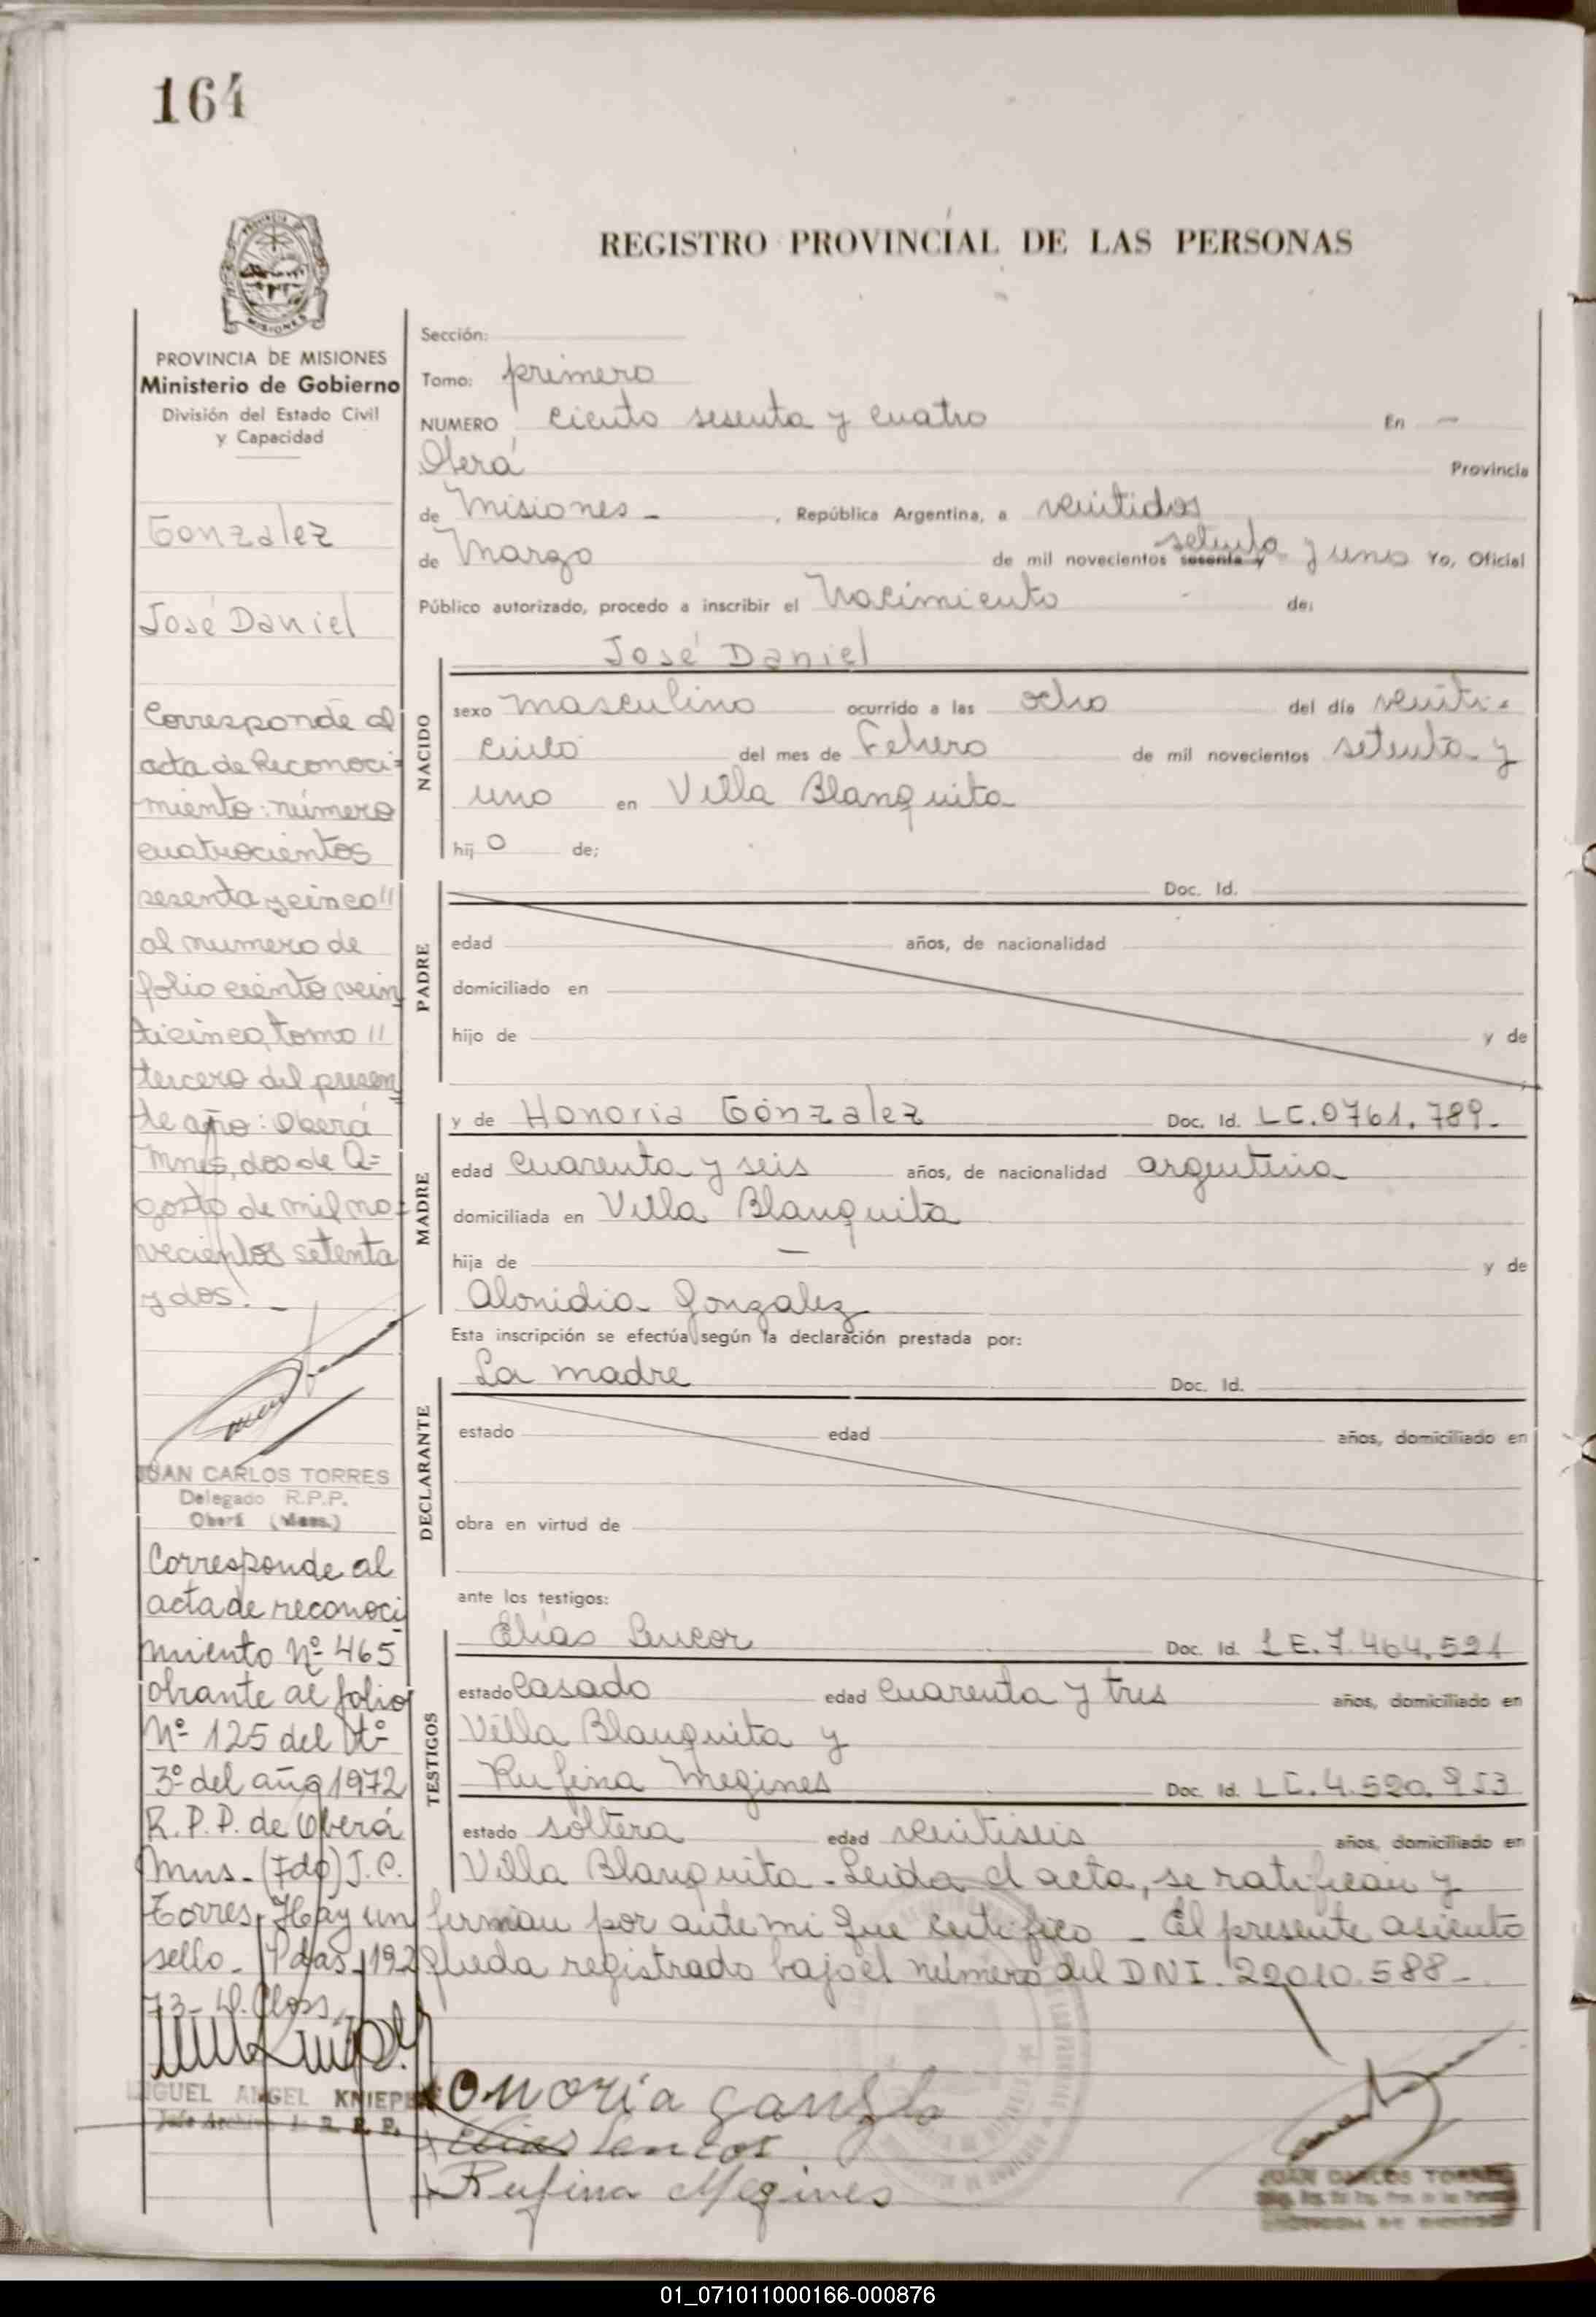 164
REGISTRO PROVINCIAL DE LAS PERSONAS
PROVINCIA DE MISIONES
Ministerio de Gobierno
División del Estado Civil
y Capacidad
Gonzalez
José Daniel
Corresponde al
acta de Reconoci=
miento: número
cuatrocientos
sesenta y cinco"
al numero de
folio ciento vein
ticinco, tomo "
tercero del presen
te año: Oberá
Mnes, dos de A=
gosto de mil no=
vecientos setenta
y dos. -
JUAN CARLOS TORRES
Delegado R.P.P.
Oberá (Mnes.)
Corresponde al
acta de reconoci
miento Nº 465
obrante al folio
Nº 125 del tº
3º del año 1972
R.P.P. de Oberá
Mns - (Fdo) J.C.
Torres. Hay un
sello -
MIGUEL ANGEL
R. P. P.
Sección:
Tomo: primero
NUMERO ciento sesenta y cuatro En -
Oberá Provincia
de Misiones - , República Argentina, a veintidos
de Marzo de mil novecientos sesenta y setenta y uno Yo, Oficial
Público autorizado, procedo a inscribir el Nacimiento de:
José Daniel
NACIDO
sexo masculino ocurrido a las ocho del día veinti-
cinco del mes de Febrero de mil novecientos setenta y
uno en Villa Blanquita
hijo de;
PADRE
Doc. Id.
edad años, de nacionalidad
domiciliado en
hijo de y de
MADRE
y de Honoria Gónzalez Doc. Id. LC.0761.789.-
edad cuarenta y seis años, de nacionalidad argentina
domiciliada en Villa Blanquita
hija de — y de
Alonidia Gonzalez
Esta inscripción se efectúa según la declaración prestada por:
DECLARANTE
La madre Doc. Id.
estado edad años, domiciliado en
obra en virtud de
ante los testigos:
TESTIGOS
Elías Doc. Id. LE.7.464.521
estado casado edad cuarenta y tres años, domiciliado en
Villa Blanquita y
Rufina Megines Doc. Id. LC.4.520.953
estado soltera edad veintiseis años, domiciliado en
Villa Blanquita - Leida el acta, se ratifican y
firman por ante mi que certifico - El presente asiento
queda registrado bajo el número del DNI. 22010.588-
onoria
Elias
Rufina Megines
JUAN CARLOS TORRES
01_071011000166-000876